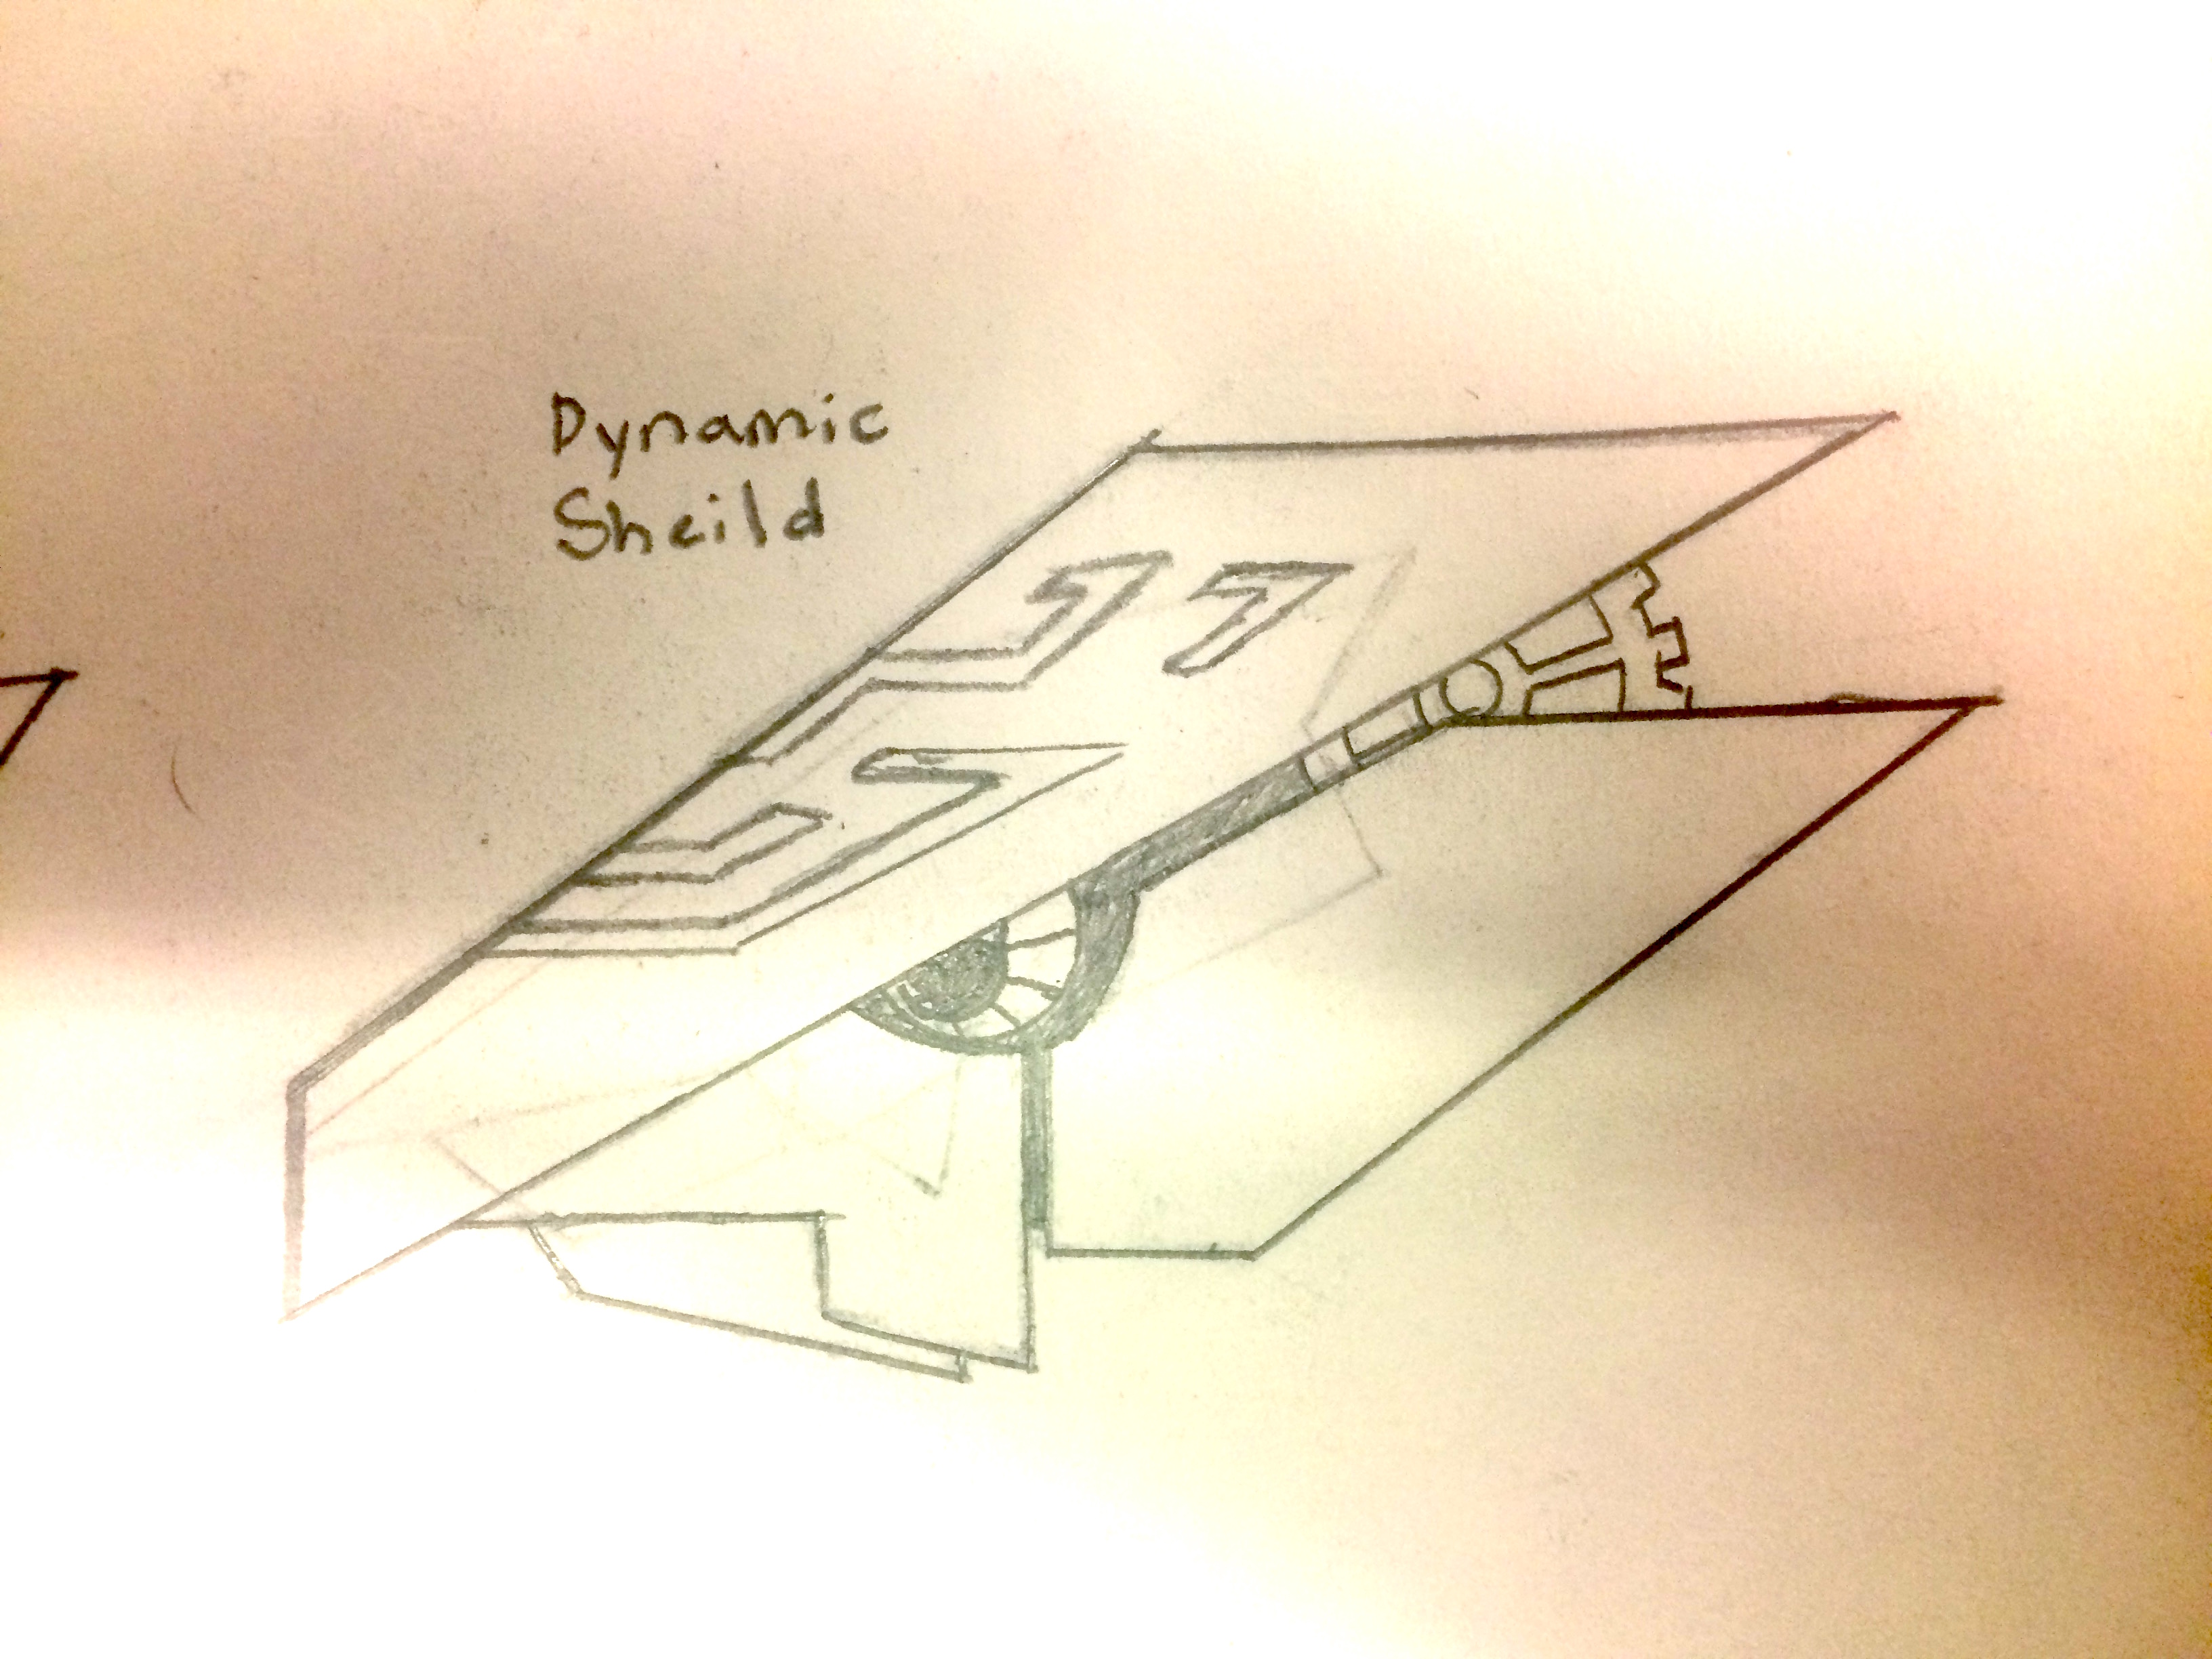 Dynamic
Sheild